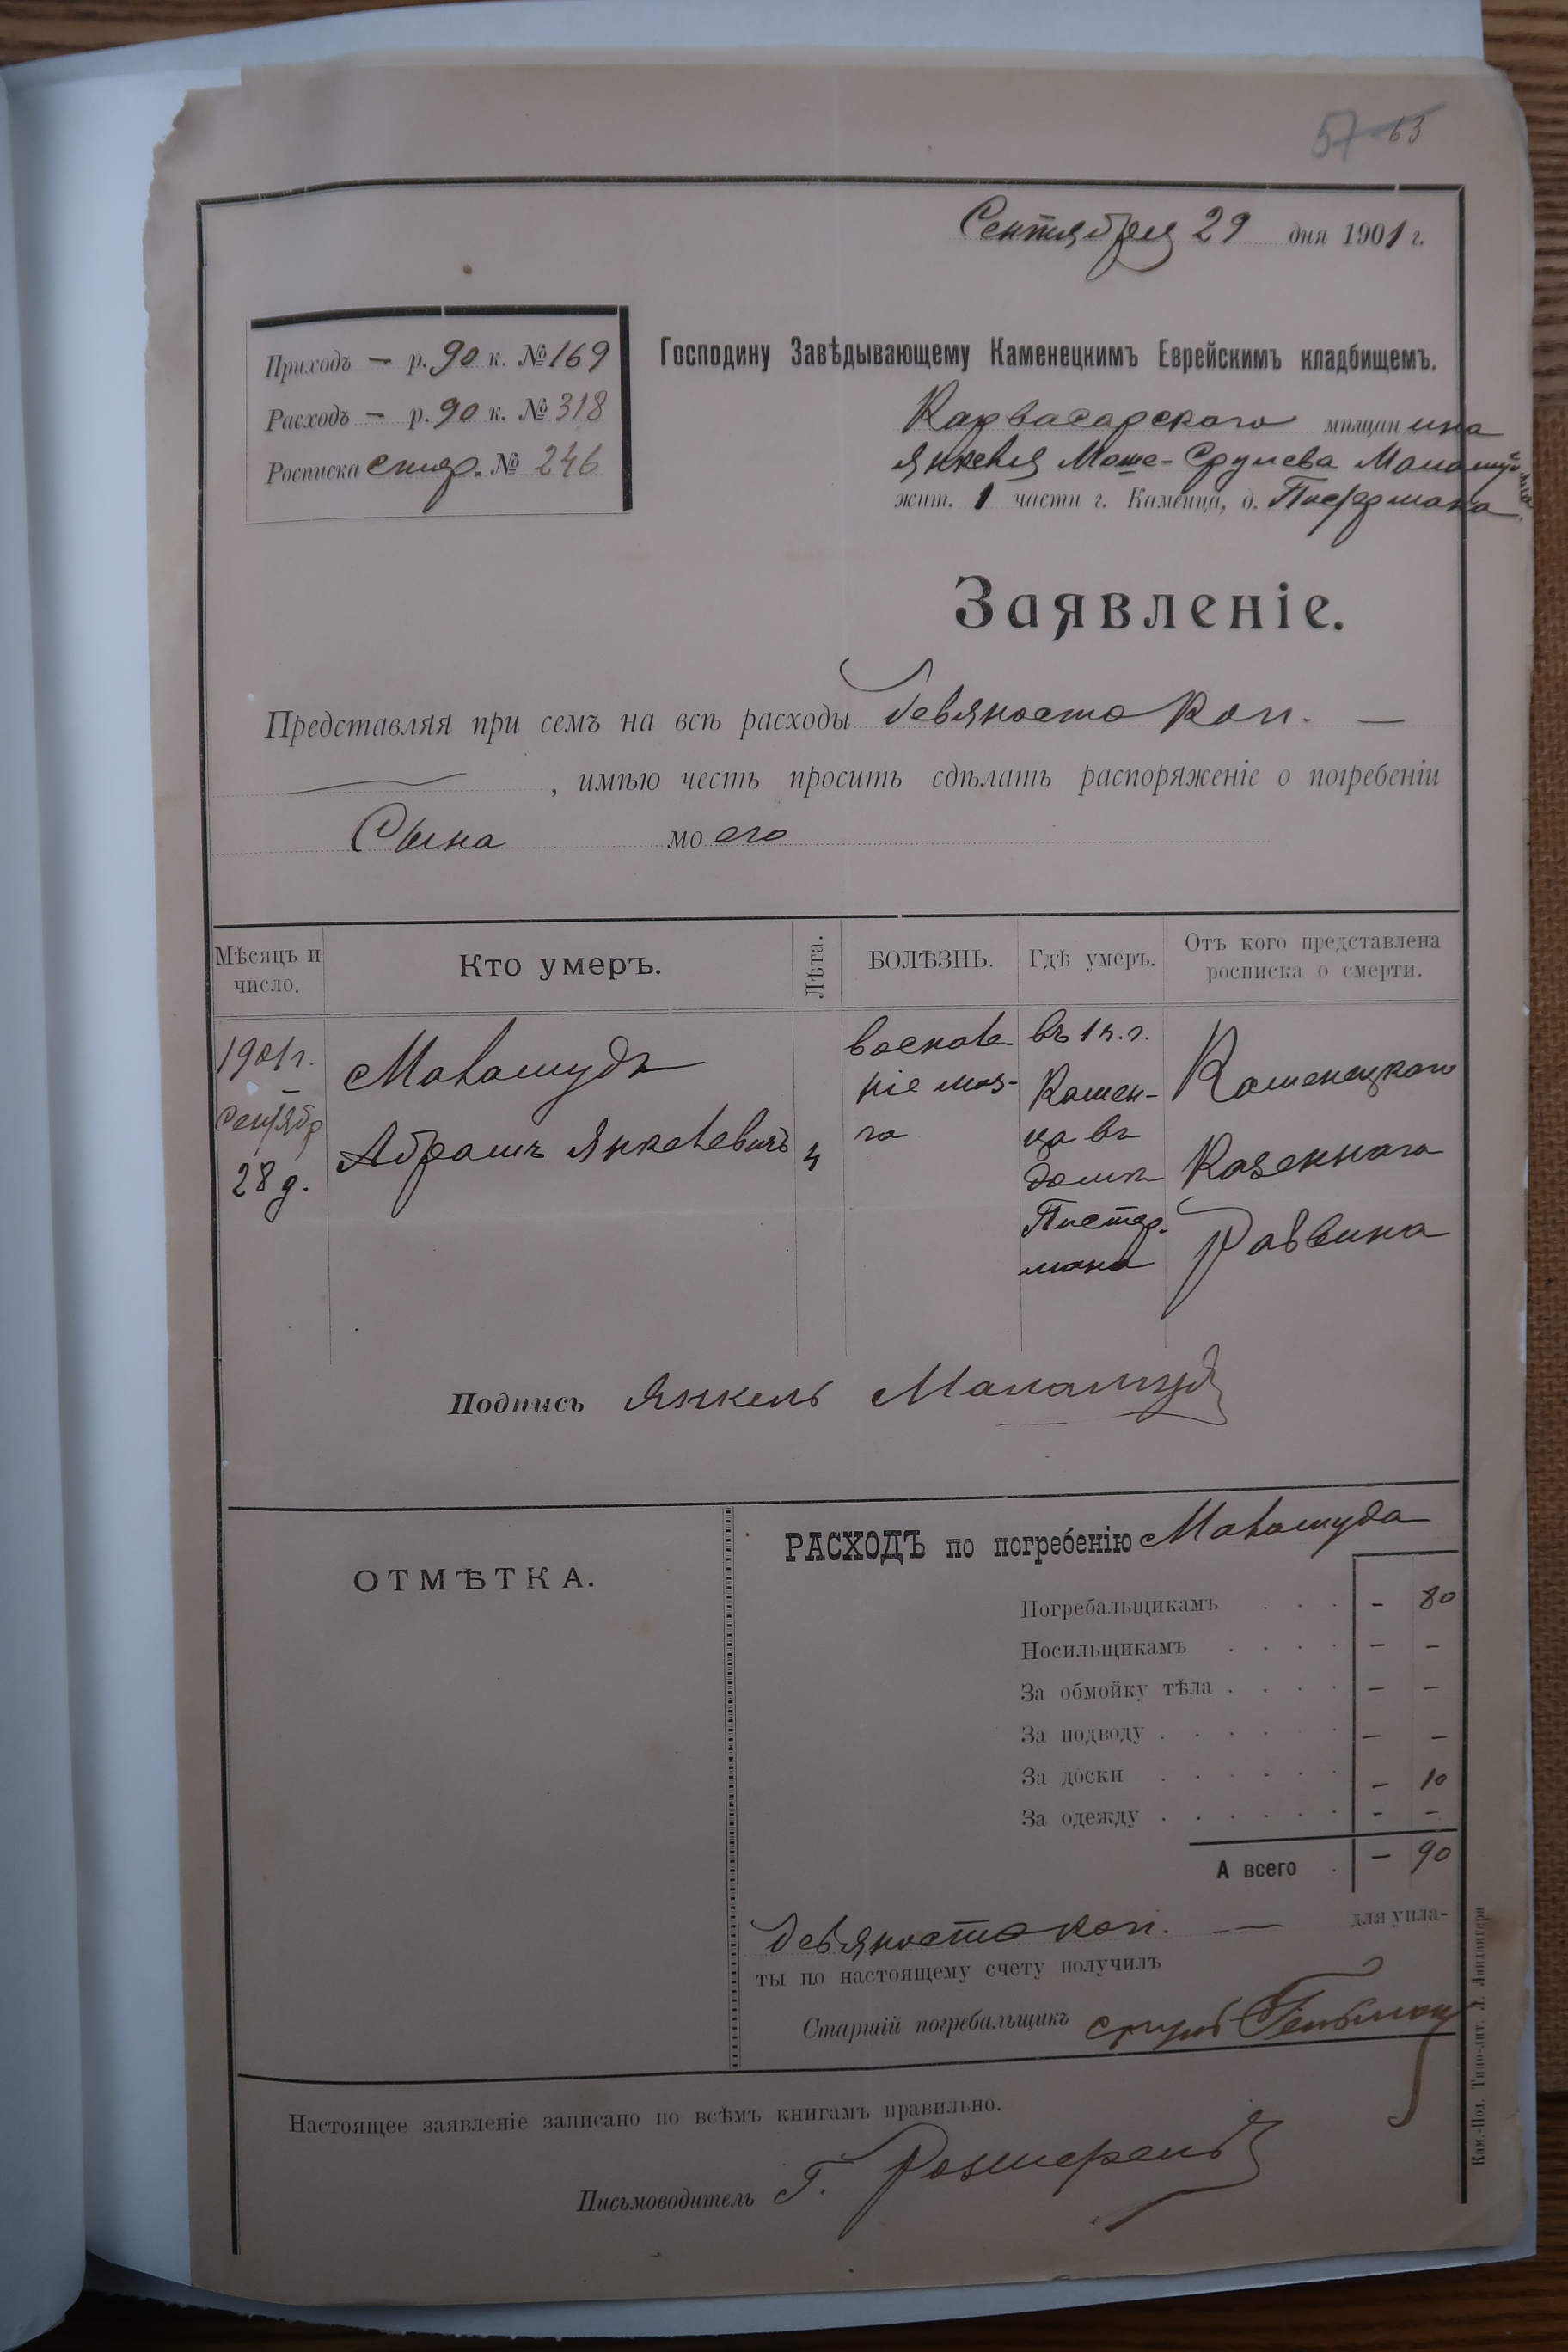 57 63
Сентября 29 дня 1901 г.
Приходъ — р. 90 к. № 169
Расходъ — р. 90 к. № 318
Росписка стар. № 246
Господину Завѣдывающему Каменецкимъ Еврейскимъ кладбищемъ.
Карвасарского мѣщанина
Янкеля Моше-Срулева Маламуда
жит. 1 части г. Каменца, д.
Заявленіе.
Представляя при семъ на всѣ расходы девяносто коп. —
—, имѣю честь просить сдѣлать распоряженіе о погребеніи
Сына моего
Мѣсяцъ и число.
Кто умеръ.
Лѣта.
БОЛѢЗНЬ.
Гдѣ умеръ.
Отъ кого представлена росписка о смерти.
1901 г.
—
Сентябр
28 д.
Маламудъ
Абрамъ Янкелевичъ
4
воспале-
ніе моз-
га
въ 1 ч. г.
Камен-
ца въ
домѣ
Пистер-
мана
Каменецкого
Казеннаго
Раввина
Подпись Янкель Маламуд
ОТМѢТКА.
РАСХОДЪ по погребенію Маламуда
Погребальщикамъ . . . - 80
Носильщикамъ . . . . — –
За обмойку тѣла . . . . — –
За подводу . . . . . — –
За доски . . . . . . – 10
За одежду . . . . . . - –
А всего . — 90
девяносто коп. — для упла-
ты по настоящему счету получилъ
Старшій погребальщикъ Сруль
Настоящее заявленіе записано по всѣмъ книгамъ правильно.
Письмоводитель Г.
Кам.-Под. Типо-лит. Л. Ландвигера